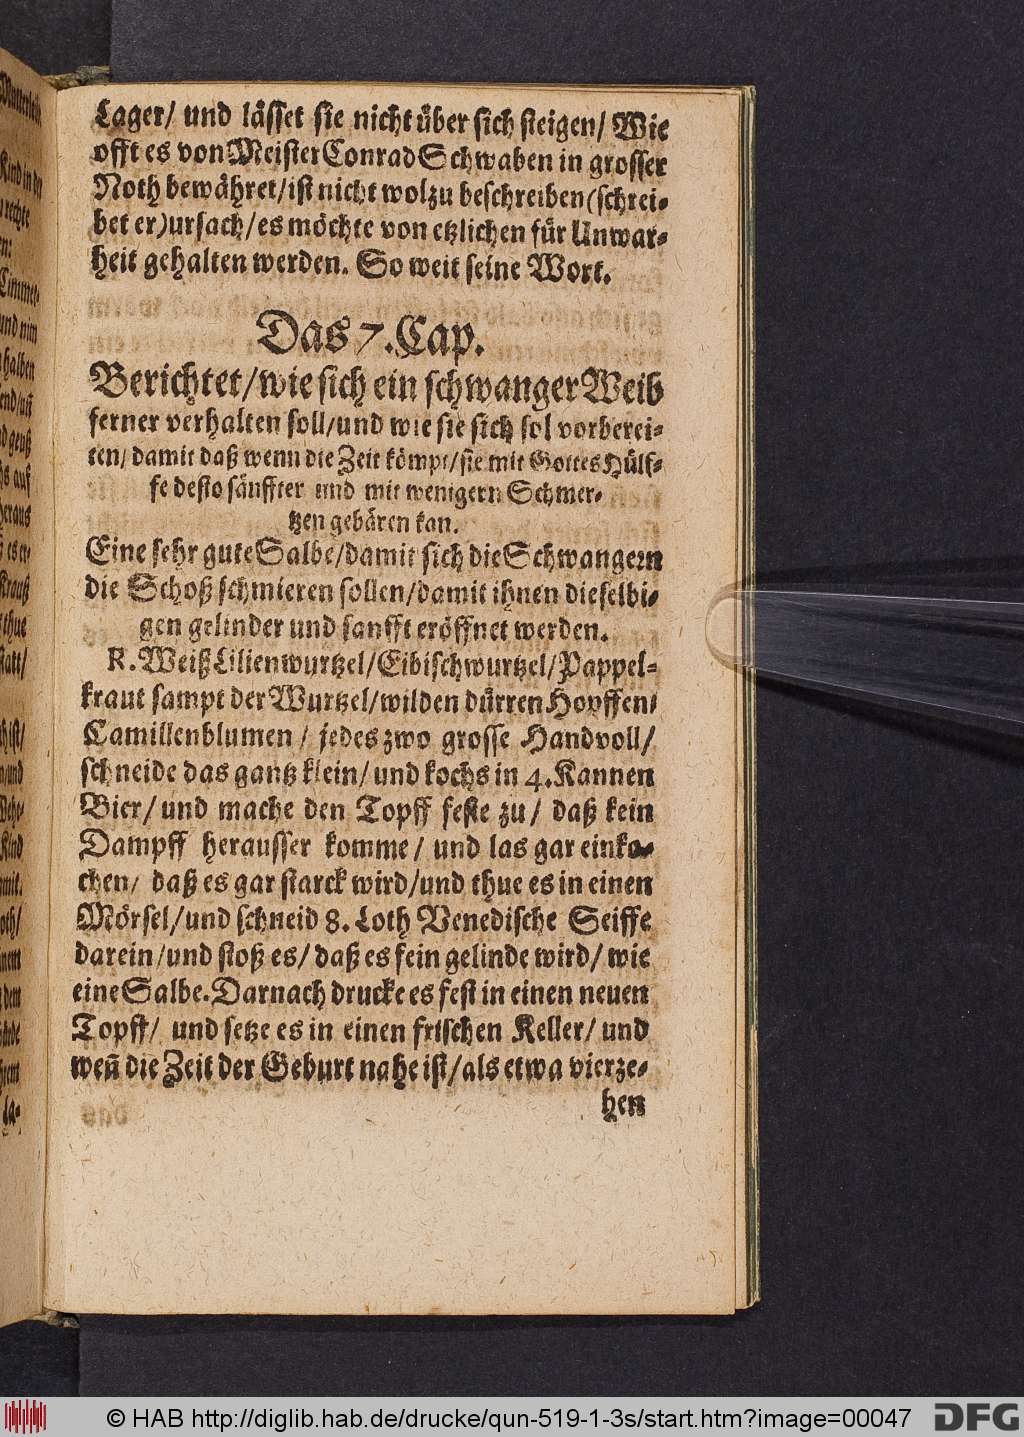 Lager/ und lässet sie nicht über sich steigen/ Wie
offt es von Meister Conrad Schwaben in grosser
Noth bewähret/ ist nicht wol zu beschreiben (schrei-
bet er) ursach/ es möchte von etzlichen für Unwar-
heit gehalten werden. So weit seine Wort.
Das 7. Cap.
Berichtet/ wie sich ein schwanger Weib
ferner verhalten soll/ und wie sie sich sol vorberei-
ten/ damit daß wenn die Zeit kömpt/ sie mit Gottes Hülf-
fe desto sänffter und mit wenigern Schmer-
tzen gebären kan.
Eine sehr gute Salbe/ damit sich die Schwangern
die Schoß schmieren sollen/ damit ihnen dieselbi-
gen gelinder und sanfft eröffnet werden.
R. Weiß Lilienwurtzel/ Eibischwurtzel/ Pappel-
kraut sampt der Wurtzel/ wilden dürren Hopffen/
Camillenblumen/ jedes zwo grosse Handvoll/
schneide das gantz klein/ und kochs in 4. Kannen
Bier/ und mache den Topff feste zu/ daß kein
Dampff herausser komme/ und las gar einko-
chen/ daß es gar starck wird/ und thue es in einen
Mörsel/ und schneid 8. Loth Venedische Seiffe
darein/ und stoß es/ daß es fein gelinde wird/ wie
eine Salbe. Darnach drucke es fest in einen neuen
Topff/ und setze es in einen frischen Keller/ und
weñ die Zeit der Geburt nahe ist/ als etwa vierze-
hen
© HAB http://diglib.hab.de/drucke/qun-519-1-3s/start.htm?image=00047
DFG